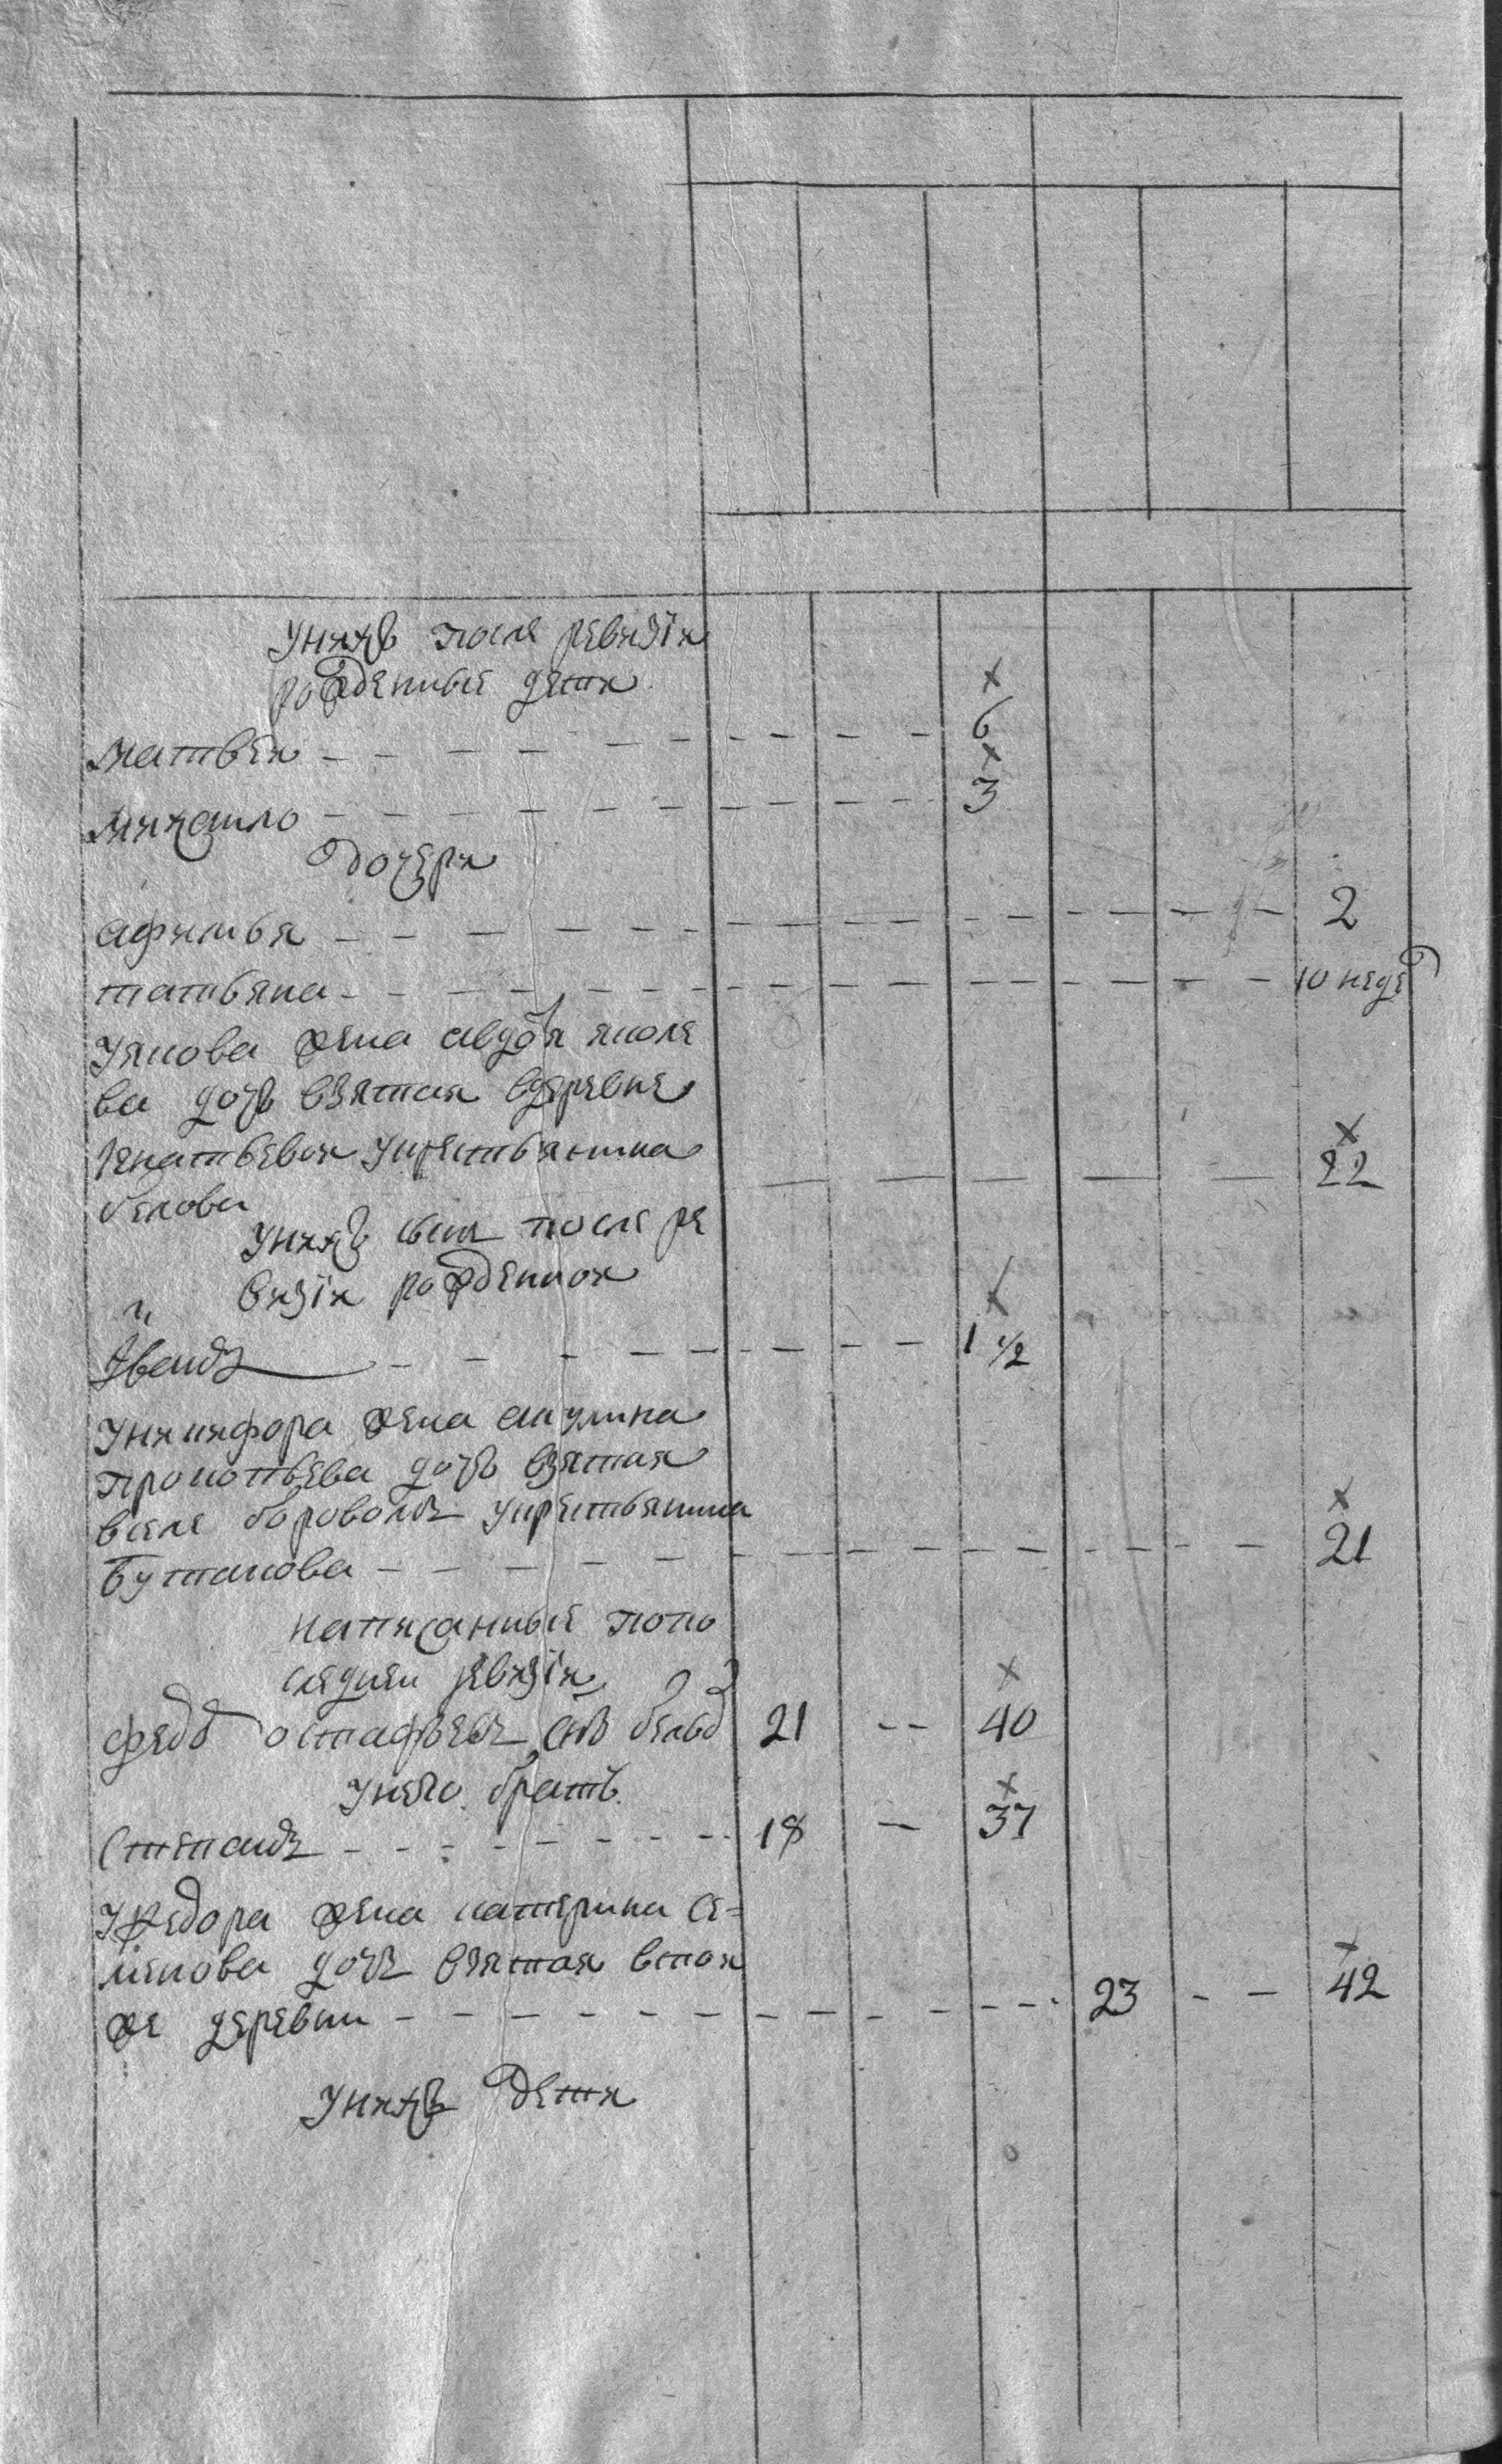 у нихъ после ревизіи
рожденные дети
матвеи - - - 6
михаило - - - 3
дочери
афимья - - - 2
татьяна - - - 10 недѣ
у якова жена авдотя яковле
ва дочь взятая вдеревне
игнатьевои укрестьянина
белова - - - 22
у нихъ сынъ после ре
визіи рожденнои
Иванъ - - - 1 1/2
у никифора жена акулина
прокопьева дочь взятая
вселе боровомъ укрестьянина
бутакова - - - 21
написанные попо
следнеи ревизіи
федоръ остафьевъ снъ беловъ 21 -- 40
у него братъ
степанъ - - - 18 - 37
уфедора жена катерина се=
менова дочь взятая втои
же деревни - - - 23 - - 42
у нихъ дети